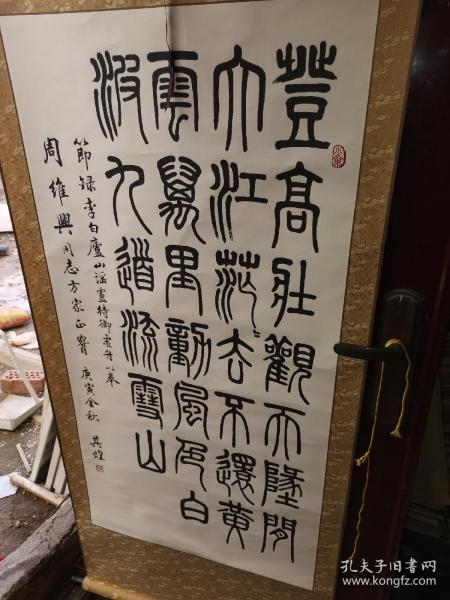 登高壯觀天墬間
大江茫〻去不還黃
雲萬里動風色白
波九道流雪山
節録李白廬山謠盧侍御虛舟以奉
周維興同志方家正 庚寅金秋 其煌
孔夫子旧书网
www.kongfz.com